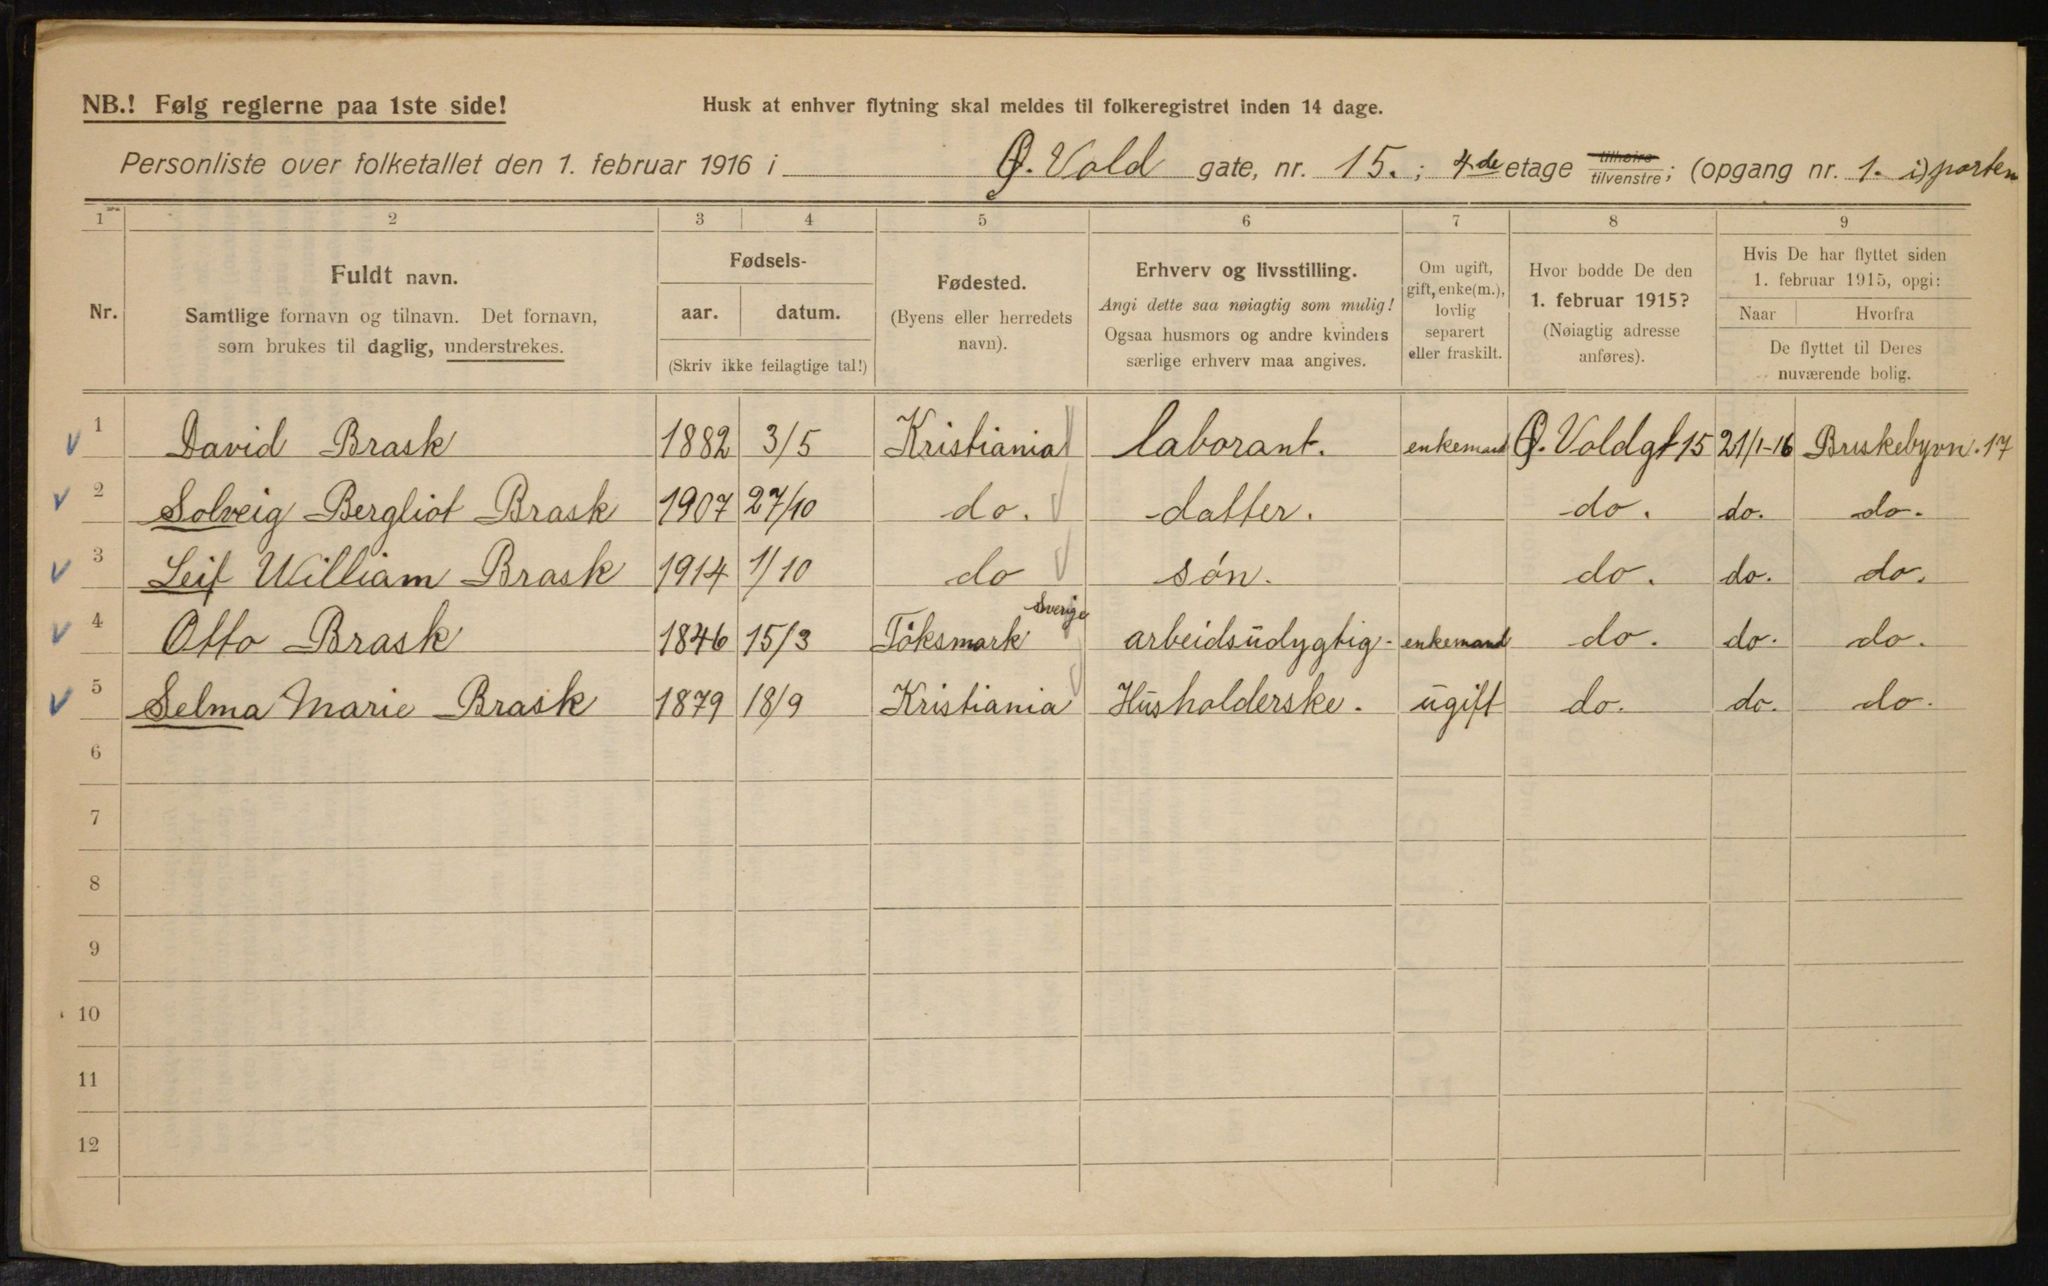 NB.! Følg reglerne paa 1ste side!
Husk at enhver flytning skal meldes til folkeregistret inden 14 dage.
Personliste over folketallet den 1. februar 1916 i Ø. Vold gate, nr. 15. ; 4de etage tilhøire tilvenstre; (opgang nr. 1. i) porten
1 2 3 4 5 6 7 8 9
Nr.
Fuldt navn.
Samtlige fornavn og tilnavn. Det fornavn,
som brukes til daglig, understrekes.
Fødsels-
aar. datum.
(Skriv ikke feilagtige tal!)
Fødested.
(Byens eller herredets
navn).
Erhverv og livsstilling.
Angi dette saa nøiagtig som mulig!
Ogsaa husmors og andre kvinders
særlige erhverv maa angives.
Om ugift,
gift, enke(m.),
lovlig
separert
eller fraskilt.
Hvor bodde De den
1. februar 1915?
(Nøiagtig adresse
anføres).
Hvis De har flyttet siden
1. februar 1915, opgi:
Naar Hvorfra
De flyttet til Deres
nuværende bolig.
1 David Brask 1882 3/5 Kristiania laborant. enkemand Ø. Voldgt 15 21/1-16 Briskebyvn. 17
2 Solveig Bergliot Brask 1907 27/10 do. datter. do. do. do.
3 Leif William Brask 1914 1/10 do søn. do. do. do.
4 Otto Brask 1846 15/3 Töksmark Sverige arbeidsudygtig - enkemand do. do. do.
5 Selma Marie Brask 1879 18/9 Kristiania Husholderske. ugift do. do. do.
6
7
8
9
10
11
12